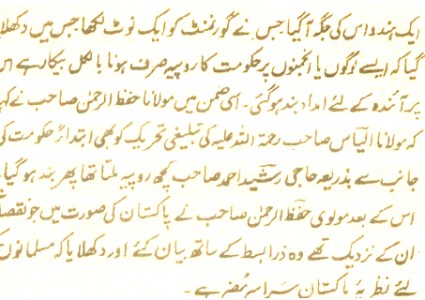 ایک ہندو اس کی جگہ آگیا جس نے گورنمنٹ کو ایک نوٹ لکھا جس میں دکھلا
گیا کہ ایسے لوگوں یا انجمنوں پر حکومت کا روپیہ صرف ہونا بالکل بیکار ہے اس
پر آئندہ کے لئے امداد بند ہوگئی۔ اسی ضمن میں مولانا حفظ الرحمٰن صاحب نے کہا
کہ مولانا الیاس صاحب رحمۃ اللہ علیہ کی تبلیغی تحریک کو بھی ابتداءً حکومت کی
جانب سے بذریعہ حاجی رشید احمد صاحب کچھ روپیہ ملتا تھا پھر بند ہو گیا۔
اس کے بعد مولوی حفظ الرحمٰن صاحب نے پاکستان کی صورت میں جو نقصا
ان کے نزدیک تھے وہ ذرا بسط کے ساتھ بیان کئے اور دکھلایا کہ مسلمانوں
لئے نظریۂ پاکستان سراسر مضر ہے۔